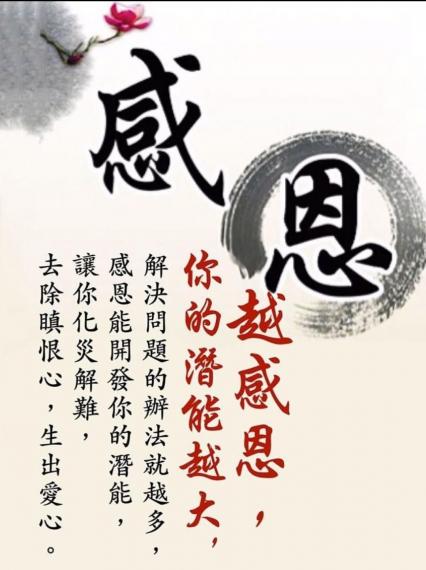 感恩
越感恩，
你的潛能越大，
解決問題的辦法就越多，
感恩能開發你的潛能，
讓你化災解難，
去除瞋恨心，生出愛心。